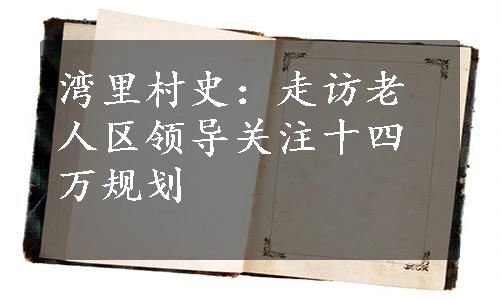 湾里村史：走访老
人区领导关注十四
万规划